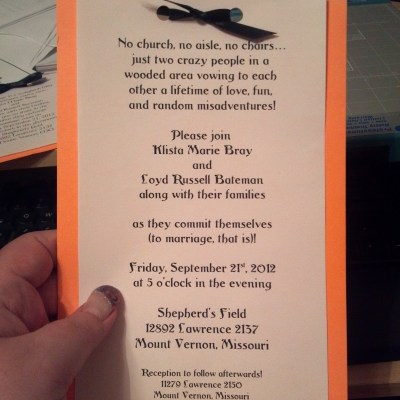 No church, no aisle, no chairs...
just two crazy people in a
wooded area vowing to each
other a lifetime of love, fun,
and random misadventures!
Please join
Klista Marie Bray
and
Loyd Russell Bateman
along with their families
as they commit themselves
(to marriage, that is)!
Friday, September 21st, 2012
at 5 o'clock in the evening
Shepherd's Field
12892 Lawrence 2137
Mount Vernon, Missouri
Reception to follow afterwards!
11279 Lawrence 2130
Mount Vernon, Missouri